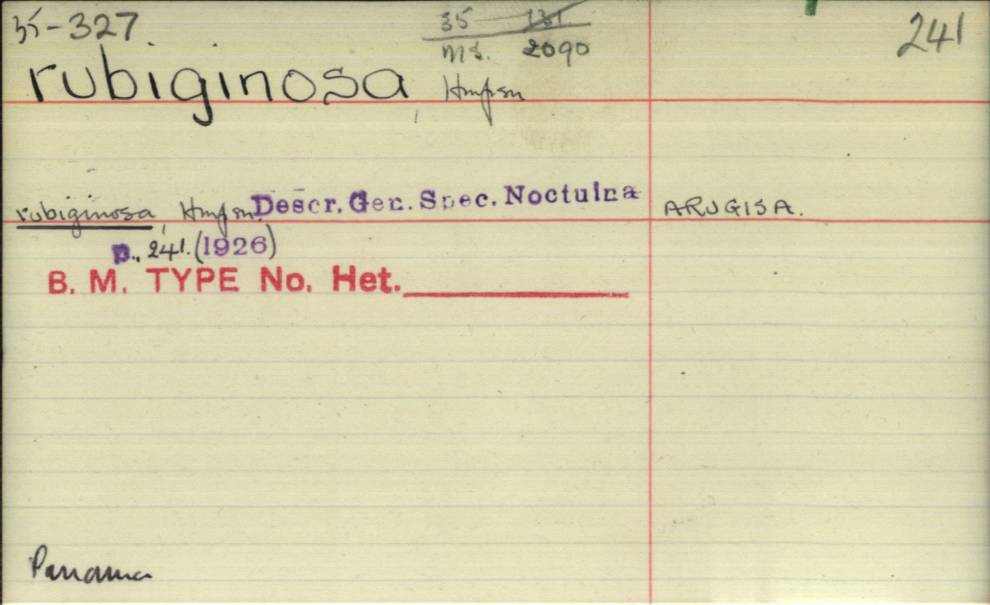 35-327. 35 131 241
ms. 2090
rubiginosa, Hmpsn
rubiginosa, Hmpsn. Descr. Gen. Spec. Noctuina ARUGISA.
p., 241. (1926)
B. M. TYPE No. Het.
Panama